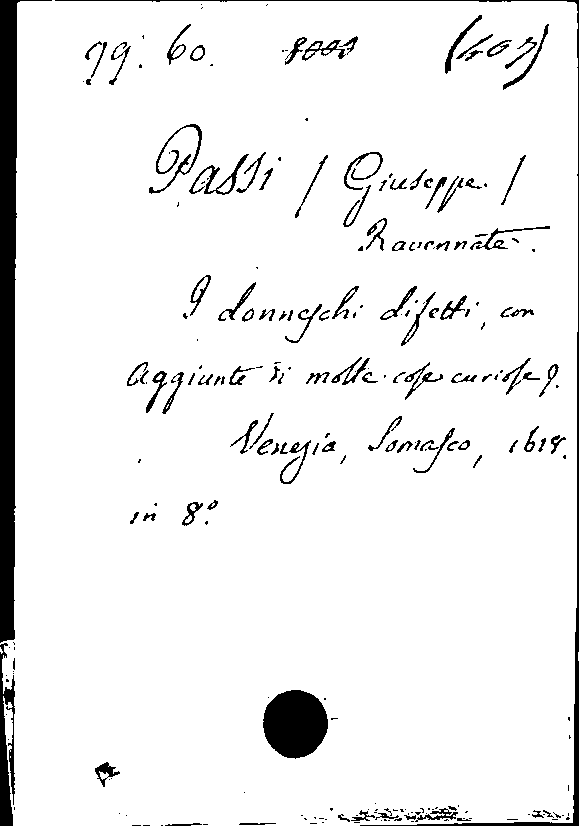 79. 60. (407)
Passi / Giuseppe. /
Ravennate.
I donneschi difetti, con
Aggiunte di molte cose curiose.
Venezia, Somasco, 1618.
in 8.º